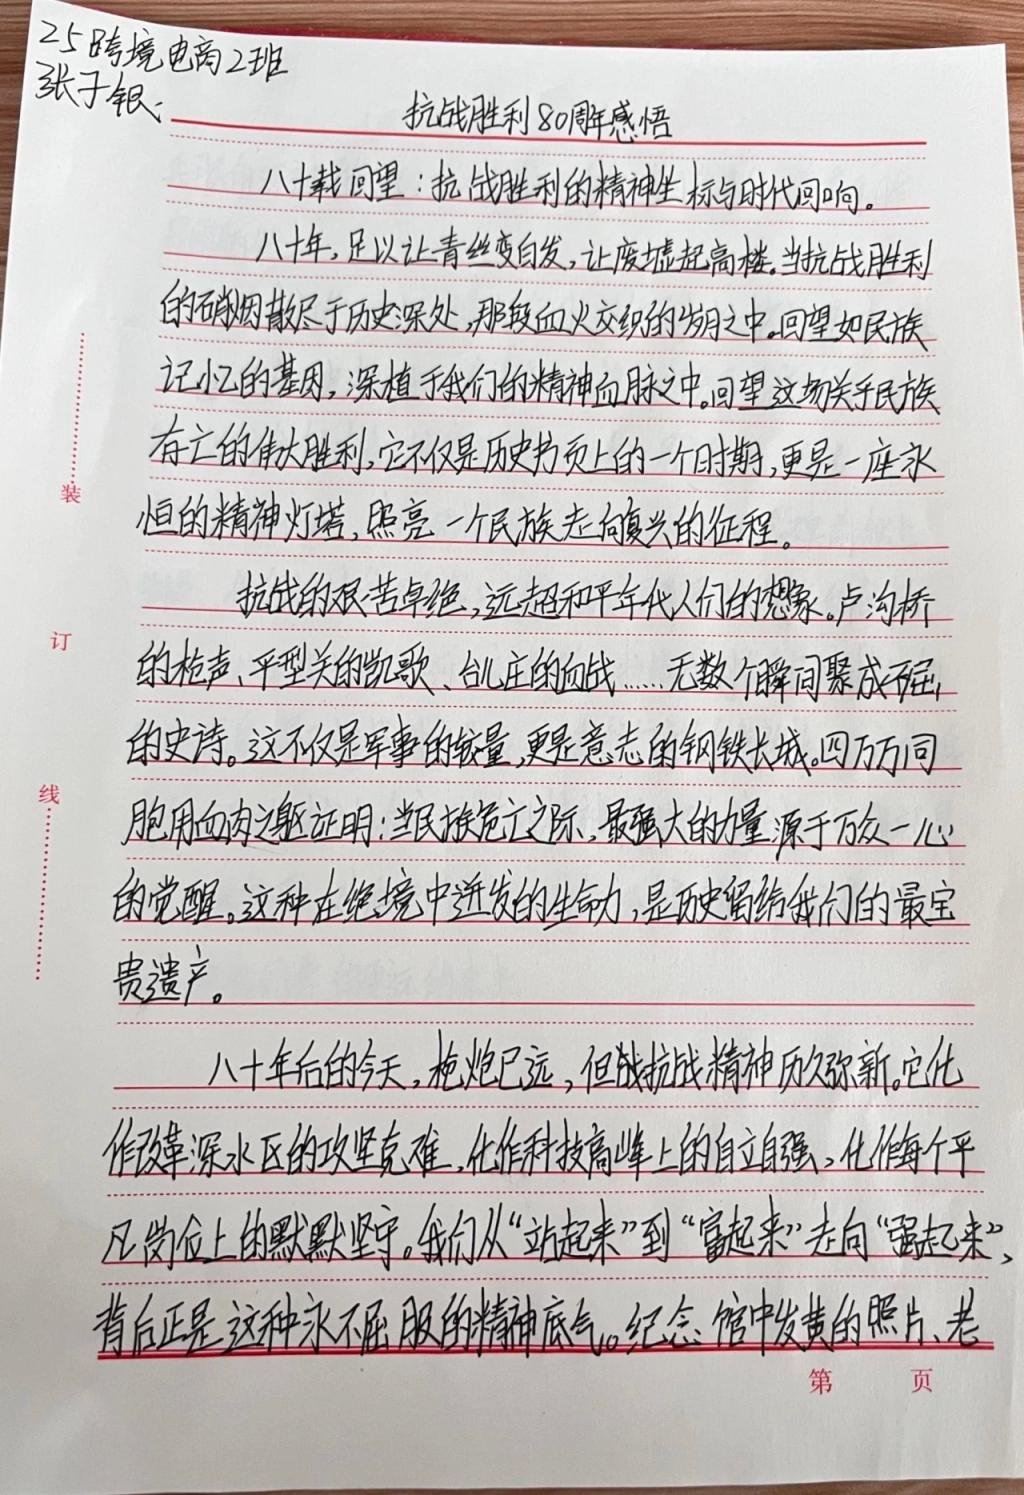 25跨境电商2班
张子银：
抗战胜利80周年感悟
八十载回望：抗战胜利的精神坐标与时代回响。
八十年，足以让青丝变白发，让废墟起高楼。当抗战胜利
的硝烟散尽于历史深处，那段血火交织的岁月之中。回望如民族
记忆的基因，深植于我们的精神血脉之中。回望这场关乎民族
存亡的伟大胜利，它不仅是历史书页上的一个时期，更是一座永
恒的精神灯塔，照亮一个民族走向复兴的征程。
抗战的艰苦卓绝，远超和平年代人们的想象。卢沟桥
的枪声、平型关的凯歌、台儿庄的血战……无数个瞬间聚成不屈
的史诗。这不仅是军事的较量，更是意志的钢铁长城。四万万同
胞用血肉之躯证明：当民族危亡之际、最强大的力量源于万众一心
的觉醒。这种在绝境中迸发的生命力，是历史留给我们的最宝
贵遗产。
八十年后的今天，枪炮已远，但战抗战精神历久弥新。它化
作改革深水区的攻坚克难，化作科技高峰上的自立自强，化作每个平
凡岗位上的默默坚守。我们从“站起来”到“富起来”走向“强起来”，
背后正是这种永不屈服的精神底气。纪念馆中发黄的照片、老
装
订
线
第 页